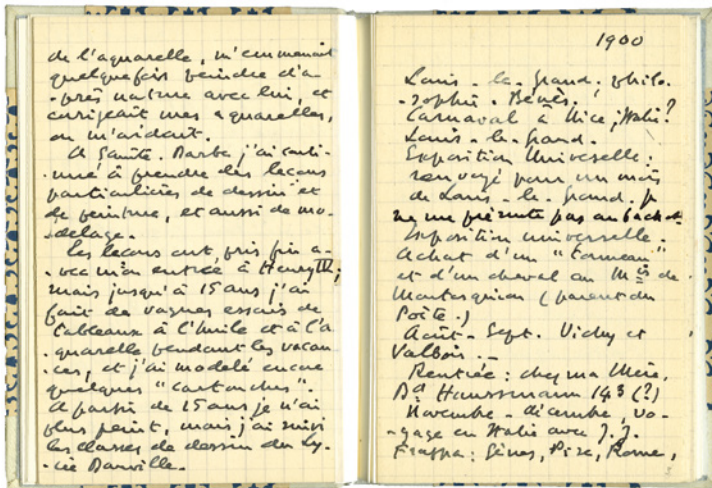 de l'aquarelle, m'emmenait
quelquefois peindre d'a-
-près nature avec lui, et
corrigeait mes aquarelles,
en m'aidant.
A Sainte-Barbe j'ai conti-
-nué à prendre des leçons
particulières de dessin et
de peinture, et aussi de mo-
-delage.
Les leçons ont pris fin a-
-vec mon entrée à Henry IV;
mais jusqu'à 15 ans j'ai
fait de vagues essais de
tableaux à l'huile et à l'a-
-quarelle pendant les vacan-
-ces, et j'ai modelé encore
quelques "cartouches".
A partir de 15 ans je n'ai
plus peint, mais j'ai suivi
les classes de dessin du Ly-
-cée
1900
Louis-le-Grand. philo-
-sophie.
Carnaval à Nice; Italie?
Louis-le-Grand.
Exposition Universelle:
renvoyé pour un mois
de Louis-le-Grand. Je
ne me présente pas au bachot.
Exposition universelle.
Achat d'un "tonneau"
et d'un cheval au Mis de
Montesquiou (parent du
Poète.)
Août-Sept. Vichy et
Valbois.-
Rentrée: chez ma Mère,
Bd Haussmann 143 (?)
Novembre-décembre, vo-
-yage en Italie avec J. J.
Frappa: Gênes, Pise, Rome,